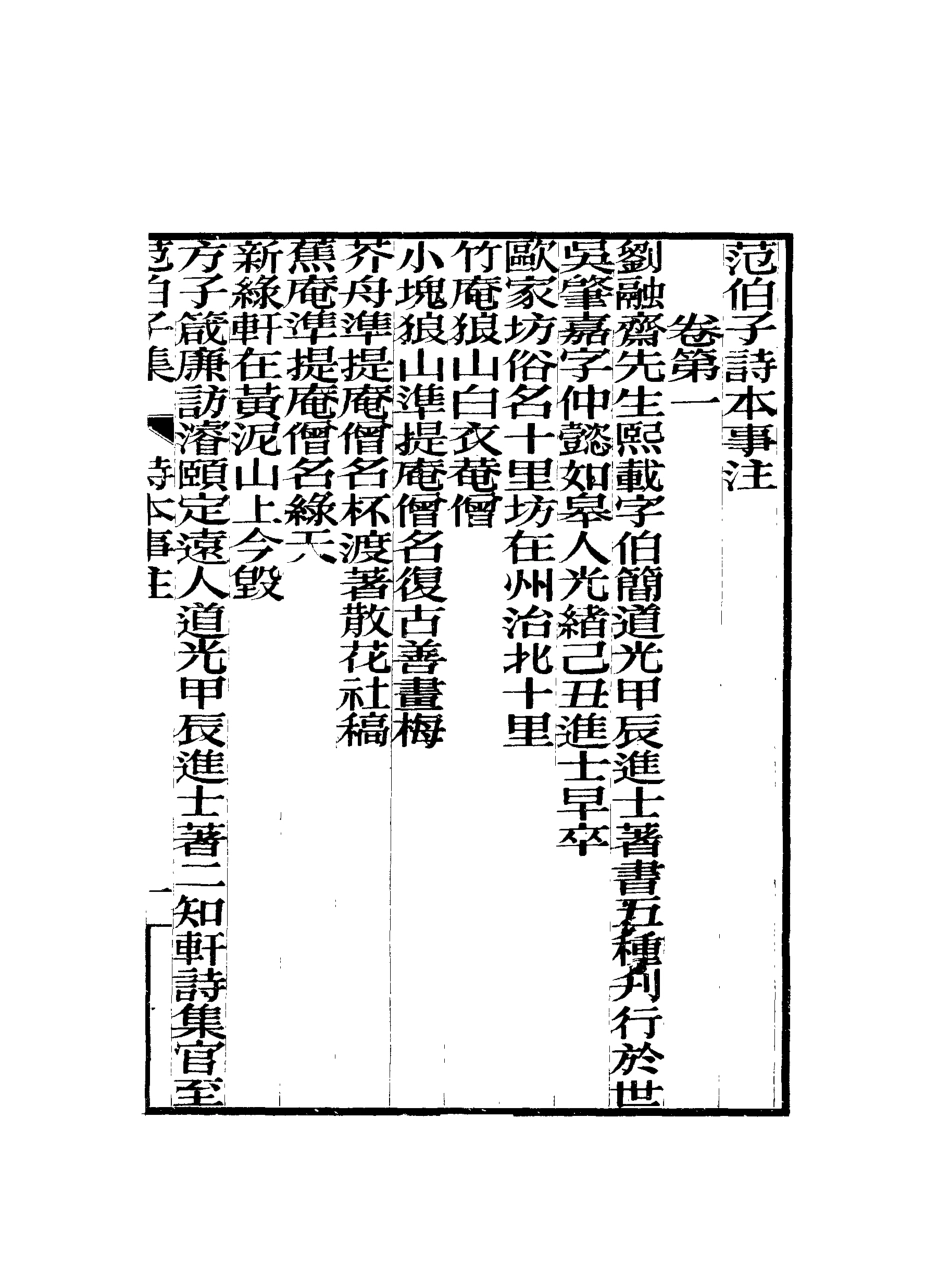 范伯子詩本事注
卷第一
劉融齋先生熙載字伯簡道光甲辰進士著書五種刋行於世
吳肇嘉字仲懿如皋人光緒己丑進士早卒
歐家坊俗名十里坊在州治北十里
竹庵狼山白衣菴僧
小塊狼山準提庵僧名復古善畫梅
芥舟準提庵僧名杯渡著散花社稿
蕉庵準提庵僧名綠天
新綠軒在黃泥山上今毀
方子箴廉訪濬頤定遠人道光甲辰進士著二知軒詩集官至
范伯子集 詩本事注 一